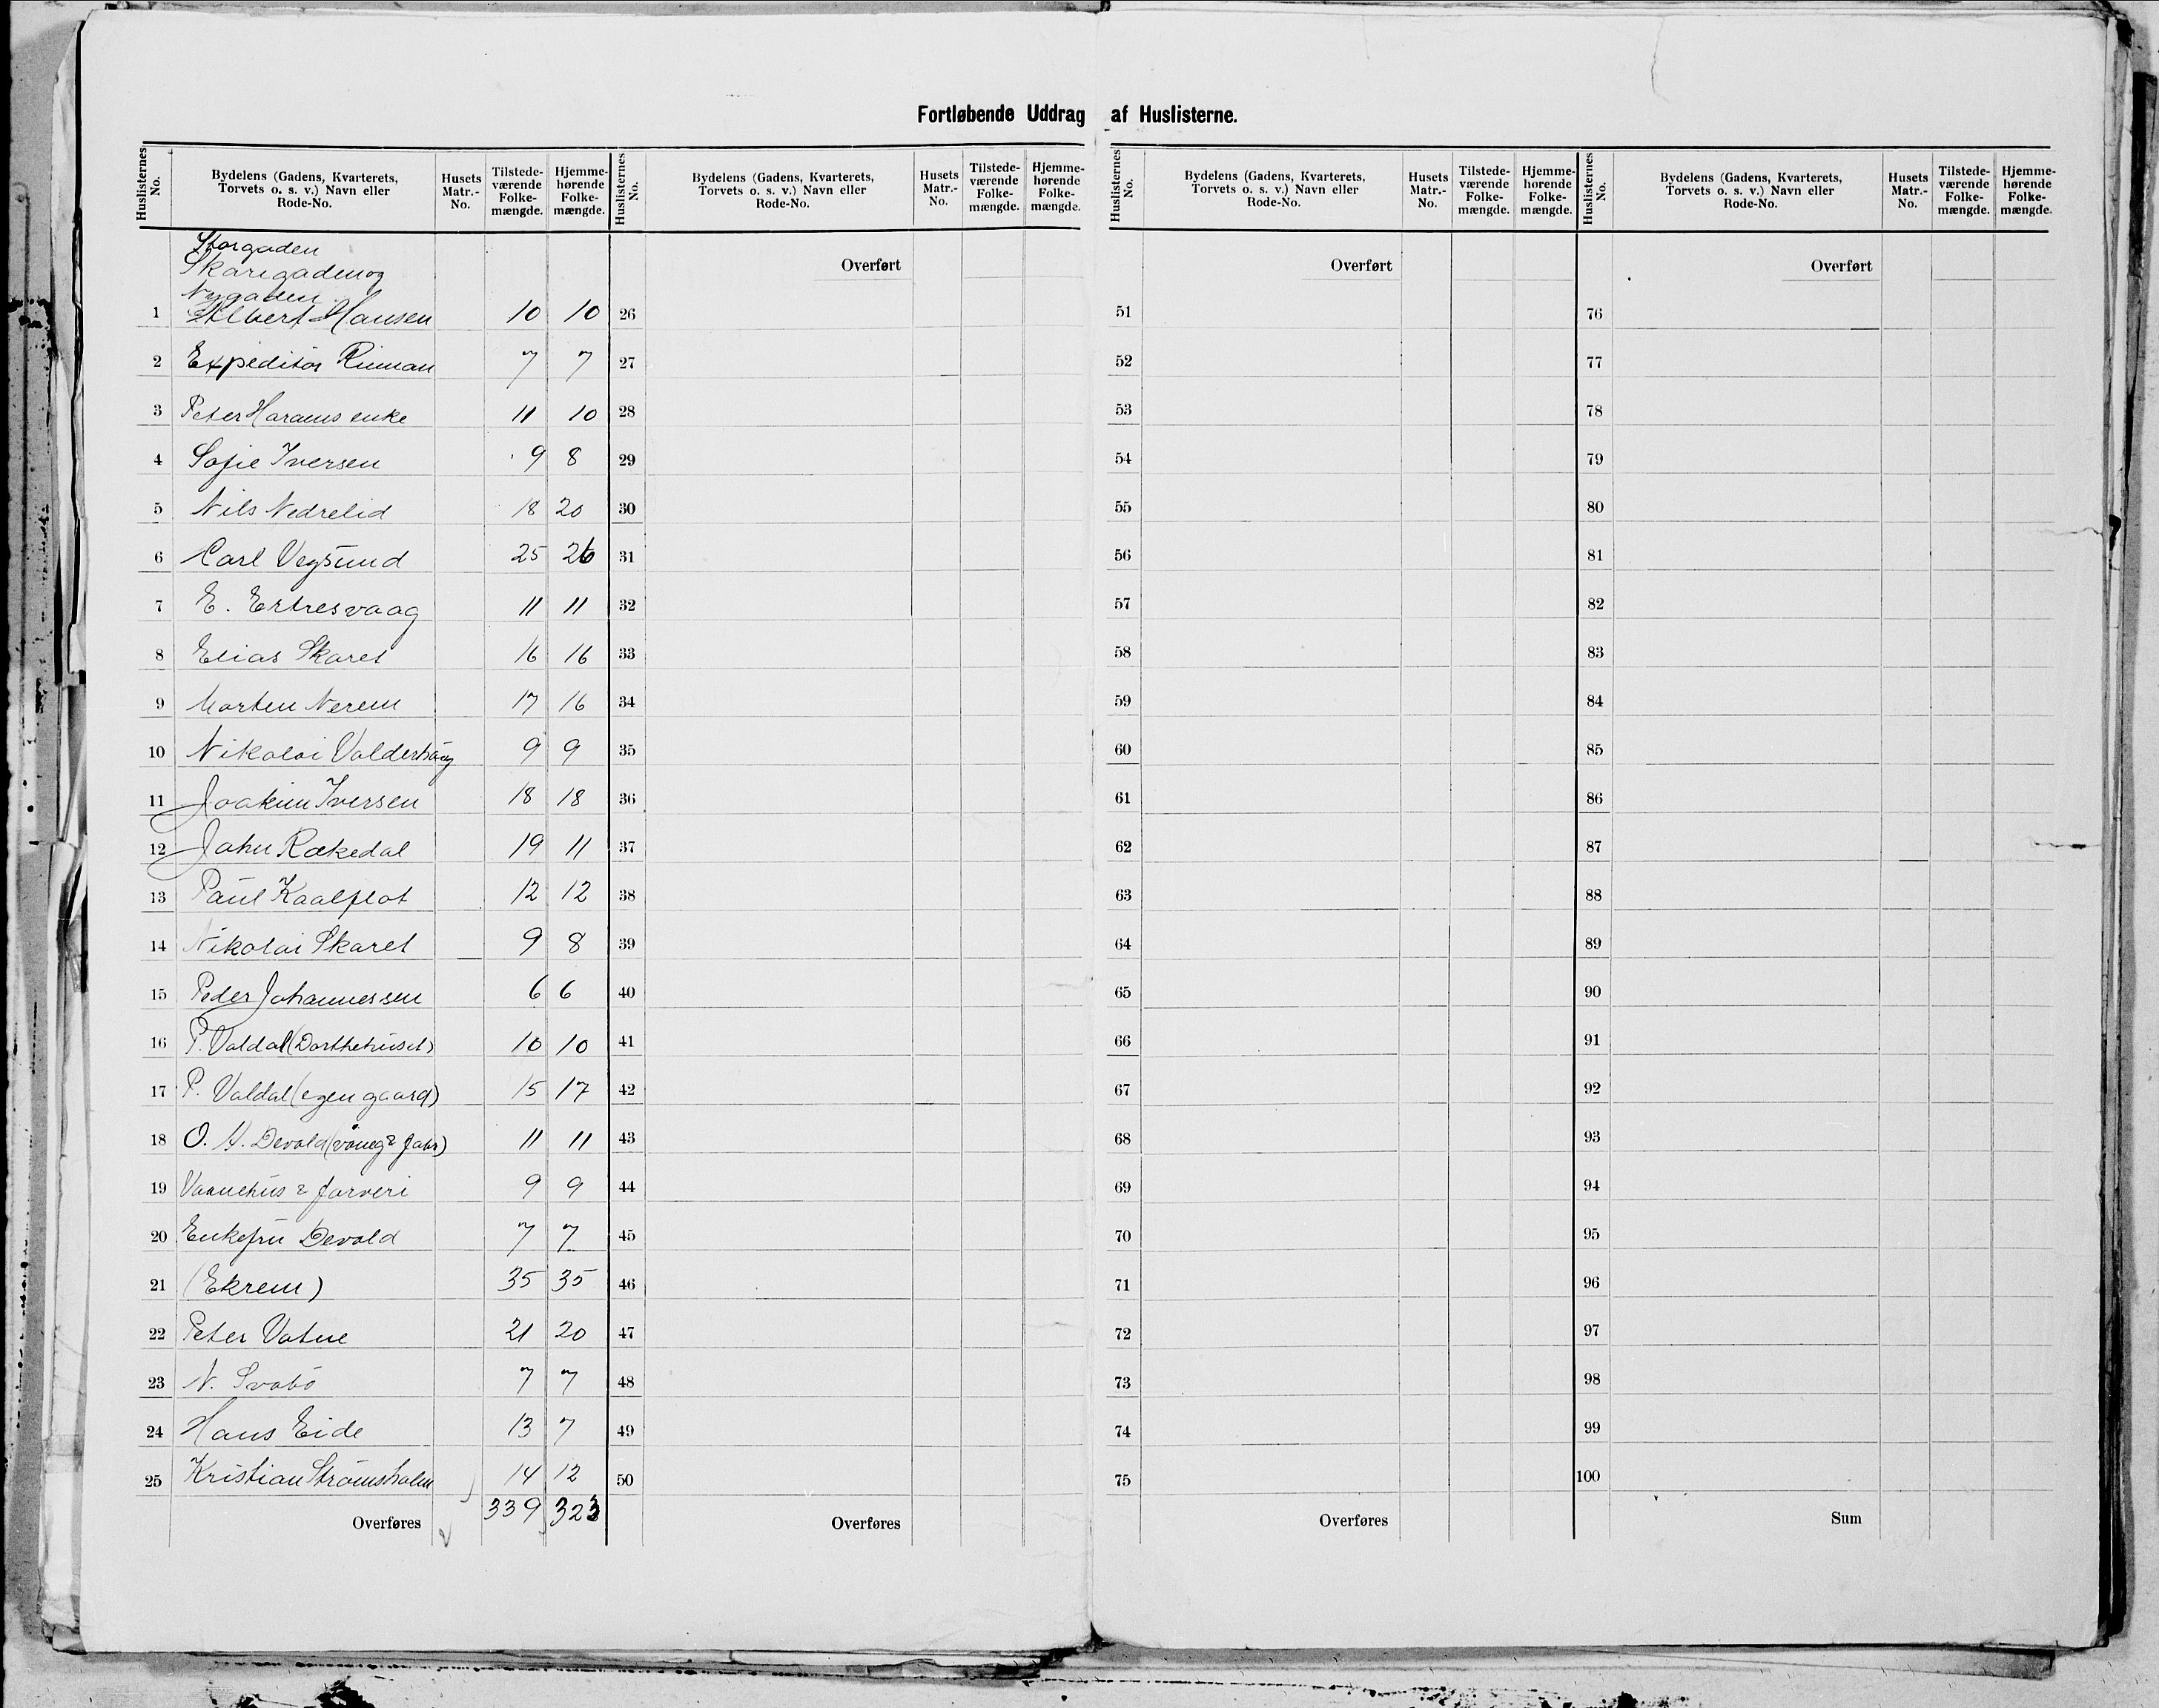 Fortløbende Uddrag af Huslisterne.
Huslisternes No. Bydelens (Gadens, Kvarterets, Torvets o. s. v.) Navn eller Rode-No. Husets Matr.-No. Tilstede-værende Folke-mængde. Hjemme-hørende Folke-mængde. Huslisternes No. Bydelens (Gadens, Kvarterets, Torvets o. s. v.) Navn eller Rode-No. Husets Matr.-No. Tilstede-værende Folke-mængde. Hjemme-hørende Folke-mængde. Huslisternes No. Bydelens (Gadens, Kvarterets, Torvets o. s. v.) Navn eller Rode-No. Husets Matr.-No. Tilstede-værende Folke-mængde. Hjemme-hørende Folke-mængde. Huslisternes No. Bydelens (Gadens, Kvarterets, Torvets o. s. v.) Navn eller Rode-No. Husets Matr.-No. Tilstede-værende Folke-mængde. Hjemme-hørende Folke-mængde.
Storgaden
Skaregaden og Overført Overført Overført
Nygaden
1 Albert Hansen 10 10 26 51 76
2 Expeditør 7 7 27 52 77
3 Peter Harams enke 11 10 28 53 78
4 Sofie Iversen 9 8 29 54 79
5 Nils Nedrelid 18 20 30 55 80
6 Carl Vegsund 25 26 31 56 81
7 E. Ertresvaag 11 11 32 57 82
8 Elias Skaret 16 16 33 58 83
9 Morten Nerem 17 16 34 59 84
10 Nikolai Valderhaug 9 9 35 60 85
11 Joakim Iversen 18 18 36 61 86
12 John Rækedal 19 11 37 62 87
13 Paul Kaalflot 12 12 38 63 88
14 Nikolai Skaret 9 8 39 64 89
15 Peder Johannessen 6 6 40 65 90
16 P. Valdal (Dorthehuset) 10 10 41 66 91
17 P. Valdal (egen gaard) 15 17 42 67 92
18 O. A. Devold 11 11 43 68 93
19 Vaanehus & farveri 9 9 44 69 94
20 Enkefru Devold 7 7 45 70 95
21 (Ekrem) 35 35 46 71 96
22 Peter Vatne 21 20 47 72 97
23 N. Svabö 7 7 48 73 98
24 Hans Eide 13 7 49 74 99
25 Kristian Strømsholm 14 12 50 75 100
Overføres 339 323 Overføres Overføres Sum